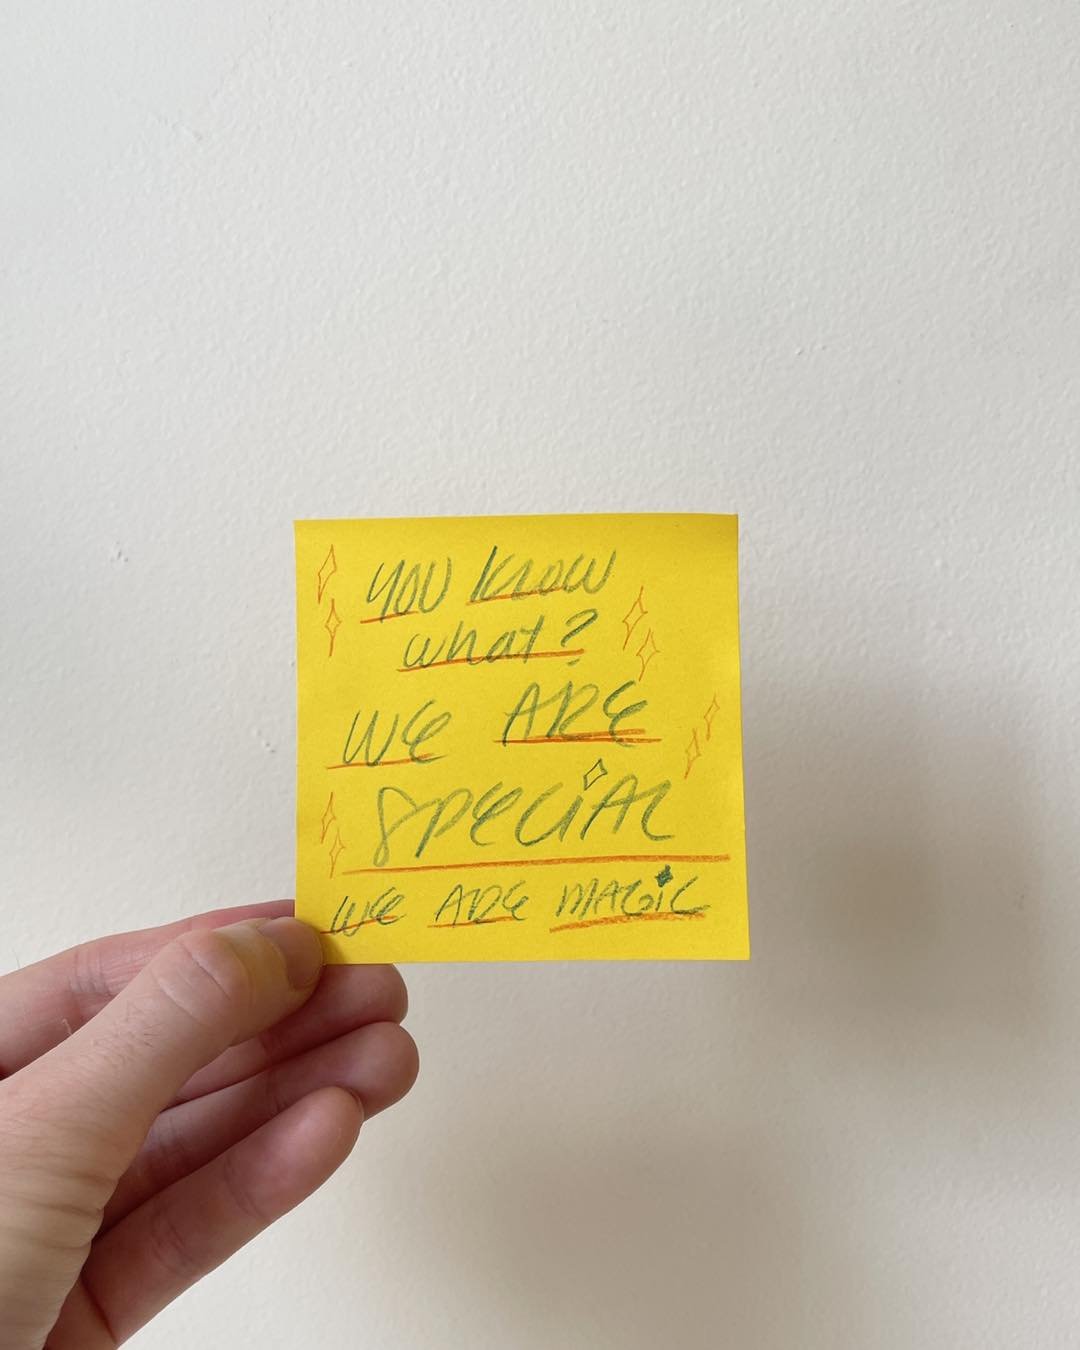 YOU KNOW
what?
WE ARE
SPECIAL
WE ARE MAGIC